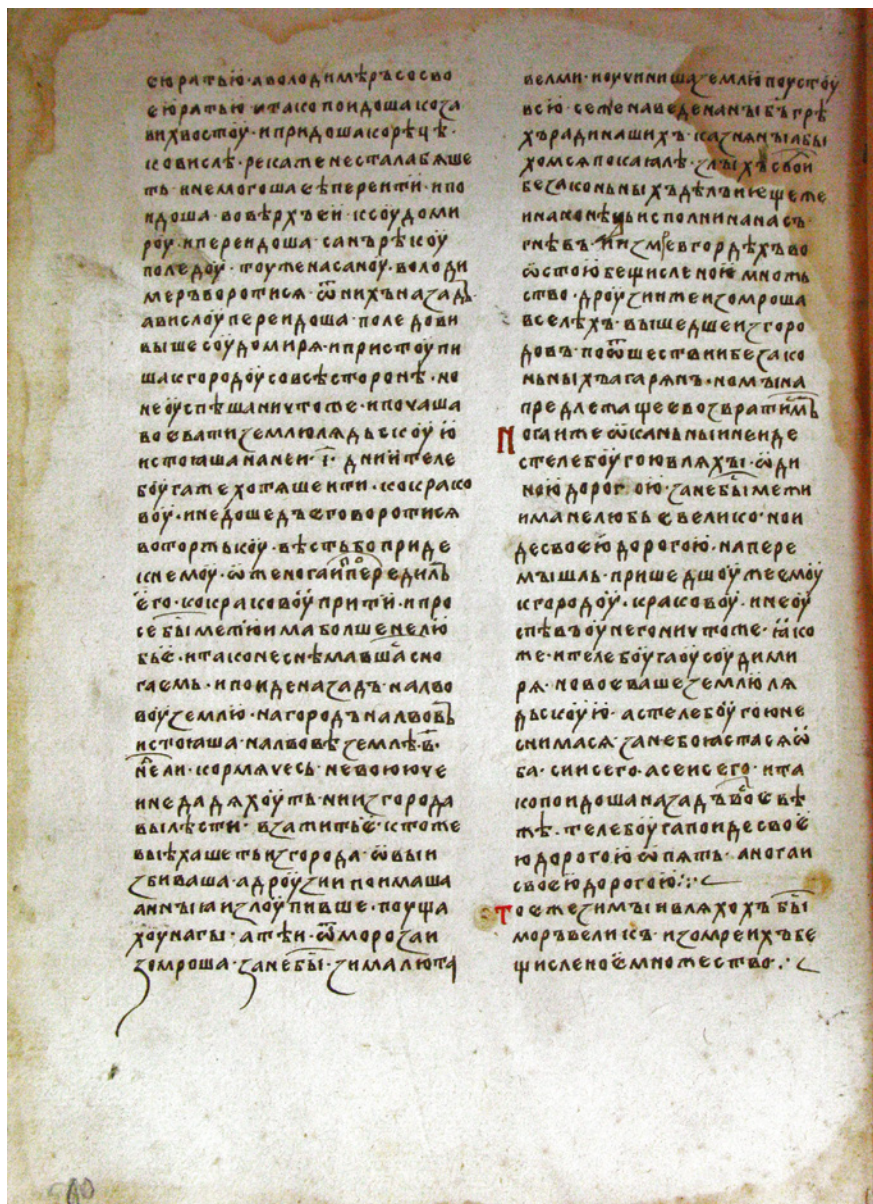 сюратью · аволодимѣръсосво
еюратью · итакопоидошакоза
вихвостоу · ипридошакорѣцѣ ·
ковислѣ · рекаженесталабяше
ть · инемогошаеѣперенти · ипо
идоша · вовѣрхъеи · ксоудоми
роу · ипереидоша · санърѣкоу
поледоу · тоуженасаноу · володи
меръворотися · ѿнихъназадъ
ависълоупереидоша · поледови
вышесоудомиря · ипристоупи
шакгородоусовсѣсторонѣ · но
неоуспѣшаничтоже · ипочаша
воеватиземлюлядьскоую
истоꙗшананеи · і · днийтеле
боугажехотяшеити · кокрако
воу · инедошедъеговоротися
воторжькоу · вѣстьбоприде
кнемоу · ѡженогаипередилъ
его · кокраковоуприти · ипро
себымежюимаболшенелю
бье · итаконеснѣмавшасно
гаемь · ипоиденазадъ · налво
воуземлю · нагородънальвовъ
истоꙗша · нальвовѣземлѣ · в҃ ·
нели · кормячесь · невоююче
инедадяхоуть · ниизгорода
вылѣсти · взажитье · ктоже
выѣхашетьизгорода · ѡвыи
збиваша · адроузиипоимаша
аиныꙗизлоупивше · поуща
хоунагы · атѣи · ѿморозаи
зомроша · занебы · зималюта
велми · иоучинишаземлюпоустоу
всю · сежнаведенаныбъгрѣ
хърадинашихъ · казняныабы
хомсяпокаꙗлѣ · злыхъсвои
безаконьныхъдѣлъиещеже
инаконѣцьисполнинанасъ ·
гнѣвъ · Иизмревгордѣхъво
ѡстоюбещисленоюмножь
ство · дроузиижеизомроша
вселѣхъ · вышедшеизгоро
довъ · поѿшествиибезако
ньныхъагарянъ · номына
предлежащеевозвратимъ
Ногаижеѡканьныинеиде
стелебоугоювляхы · ѡди
ноюдорогою · занебымежи
иманелюбьевелико · нои
десвоеюдорогою · напере
мышль · пришедшоужеемоу
кгородоу · краковоу · инеоу
спѣвъоунегоничтоже · ꙗко
же · ителебоугаоусоудими
ря · новоевашеземлюля
дьскоую · астелебоугоюне
снимася · занебоꙗстасяѡ
ба · сиисего · асеисего · ита
копоидошаназадъвоевѣ
жѣ · телебоугапоидесвое
юдорогоюѡпять · аногаи
своеюдорогою ⁘
Тоежезимыивляхохъбы
моръвеликъ · изомреихъбе
щисленоемножество ⁘